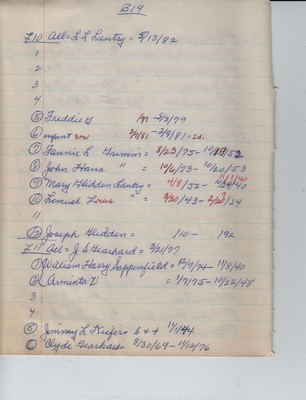 B19
L10 All = L L Lantry = 5/13/82
1
2
3
4
5 Freddie G 5/3/79
6 infant son 2/7/81 - 2/9/81 = 2da.
7 Fannie L Grimm = 8/23/75 - 53
8 John Hana " = 10/6/73 - 10/20/53
9 Mary Glidden Lantry = 4/8/52 -
10 Lemuel Lowe " = 3/30/43 - 2/20/24
11
12 Joseph Glidden = 110 - 192
L11 All = J S Gearhard = 3/21/77
1 William Harry Sappenfield = 12/9/74 - 11/8/40
2 Arminta V = 1/7/75 - 10/22/48
3
4
5 Jimmey L Keefer = b + + 11/1/44
6 Clyde Gearhard = 8/30/69 - 11/12/76